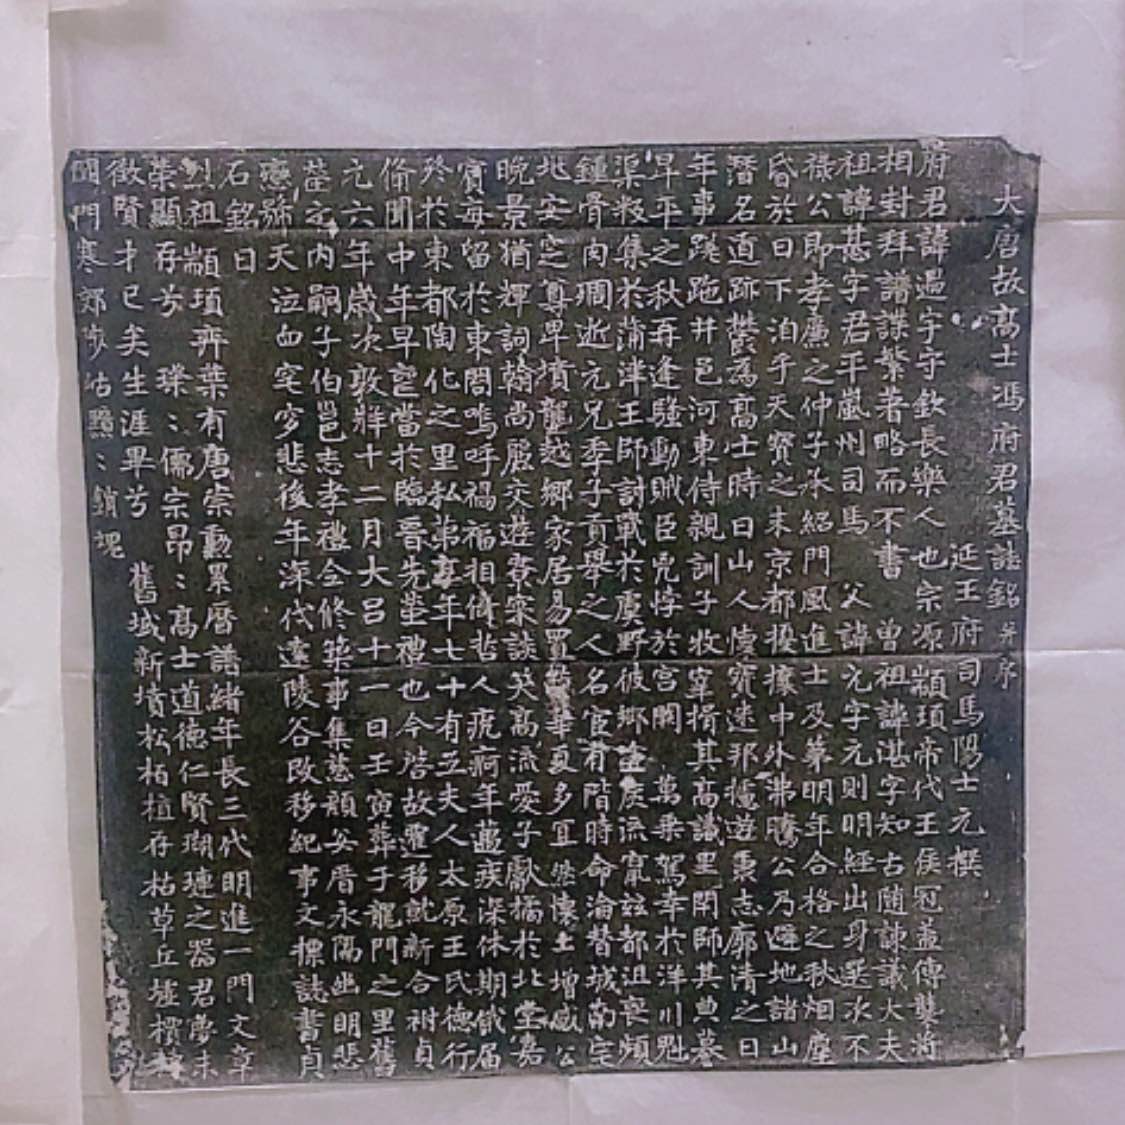 大唐故高士馮府君墓誌銘并序
延王府司馬陽士元撰
府君諱過字守欽長樂人也宗源顓頊帝代王侯冠蓋傳襲將
相封拜譜諜繁著略而不書 曾祖諱湛字知古隨諫議大夫
祖諱甚字君平嵐州司馬 父諱元字元則明經出身選次不
祿公即孝廉之仲子承紹門風進士及第明年合格之秋烟塵
昏於日下洎乎天寶之末京都擾攘中外沸騰公乃避地諸山
潛名遁跡鬱為高士時日山人懷寶迷邦攄遊裏志廓清之日
年事蹉跎井邑河東侍親訓子牧宰揖其高識里閈師其典墓
早平之秋再逢騷動賊臣兇悖於宮闕 萬乘駕幸於洋川魁
渠叛集於蒲津王師討戰於虞野彼鄉 庶流竄茲都沮喪頻
鍾骨肉凋逝元兄季子貢舉之人名宦有階時命淪替城南宅
兆安定尊卑墳壟越鄉家居易置 華夏多宜然懷土增感公
晚景猶輝詞翰尚麗交遊賓寀談笑高流愛子獻橘於北堂嘉
賓每留於東閤嗚呼禍福相倚哲人疣痾年邁疾深休期俄屆
終於東都陶化之里私弟享年七十有五夫人太原王氏德行
脩聞中年早 當於臨晉先塋禮也今啓故遷移就新合祔貞
元六年歲次敦牂十二月大呂十一日壬寅葬于龍門之里舊
塋之內嗣子伯邕志孝禮全修築事集慈顏安厝永隔幽明悲
戀號天泣血窀穸悲後年深代遠陵谷改移紀事文標誌書貞
石銘曰
烈祖顓頊奔葉有唐宗勳累曆譜緒年長三代明進一門文章
榮顯存芳 璨〻儒宗昂〻高士道德仁賢瑚璉之器君慶未
徵賢才已矣生涯畢兮 舊域新墳松柏植存枯草丘墟櫬
閟門寒郊 黯〻銷魂